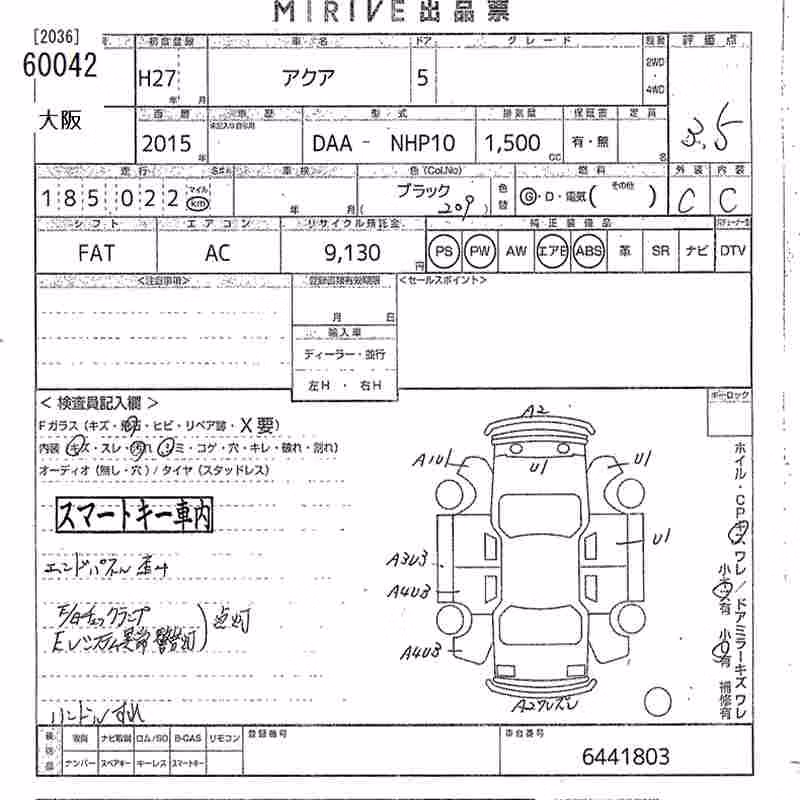 MIRIVE 出品票
[2036]
60042
大阪
初度登録 車名 ドア グレード 評価点
H27 年 月 アクア 5 2WD・4WD 3.5
車歴 型式 排気量 保証書 定員
2015 年 DAA - NHP10 1,500 cc 有・無 名
走行 車検 色 (Col,No) 燃料 外装 内装
185,022 マイル km 年 月 ブラック 209 色替 Ⓖ・D・電気( その他 ) C C
シフト エアコン リサイクル預託金 純正装備品
FAT AC 9,130 円 PS PW AW エアB ABS 革 SR ナビ DTV
<注意事項> <セールスポイント>
月 日
輸入車
ディーラー・並行
左H ・ 右H
< 検査員記入欄 > ボーロック
Fガラス (キズ・飛石・ヒビ・リペア跡・X要)
内装 (キズ・スレ・汚れ・シミ・コゲ・穴・キレ・破れ・割れ)
オーディオ (無し・穴) / タイヤ (スタッドレス)
スマートキー車内
ハンドルすれ
点灯
A2
U1
A1U1
U1
U1
A3U3
A4U3
A4U3
ホイル・CPキズ ワレ/ドアミラーキズ ワレ
補修有
後送品 取説 ナビ取説 ロム/SD B-CAS リモコン 登録番号 車台番号
ナンバー スペアキー キーレス スマートキー 6441803